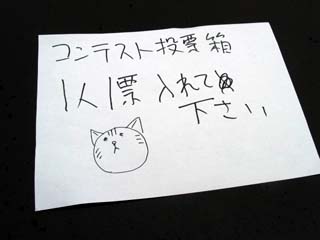 コンテスト投票箱
1人1票入れて
下さい